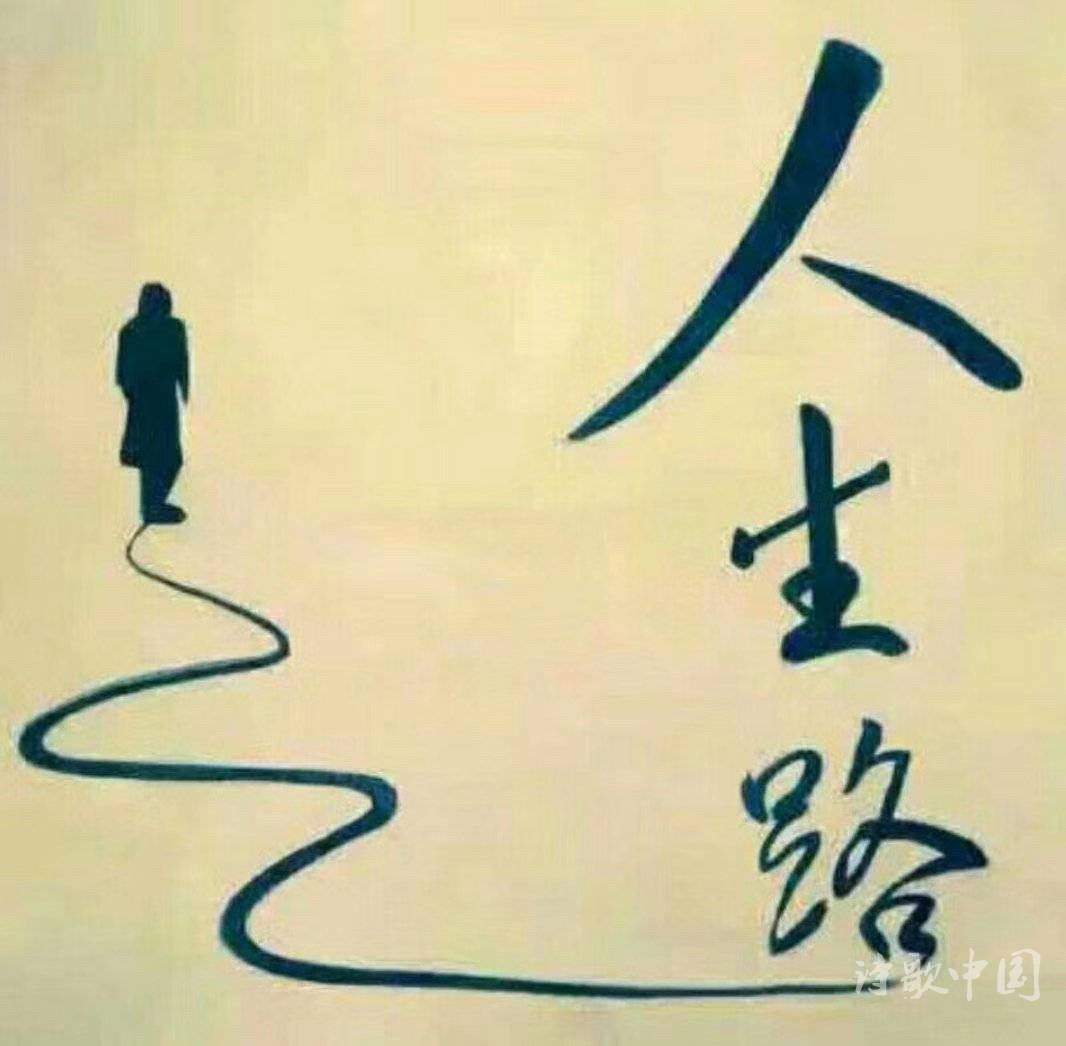 人生路
诗歌中国